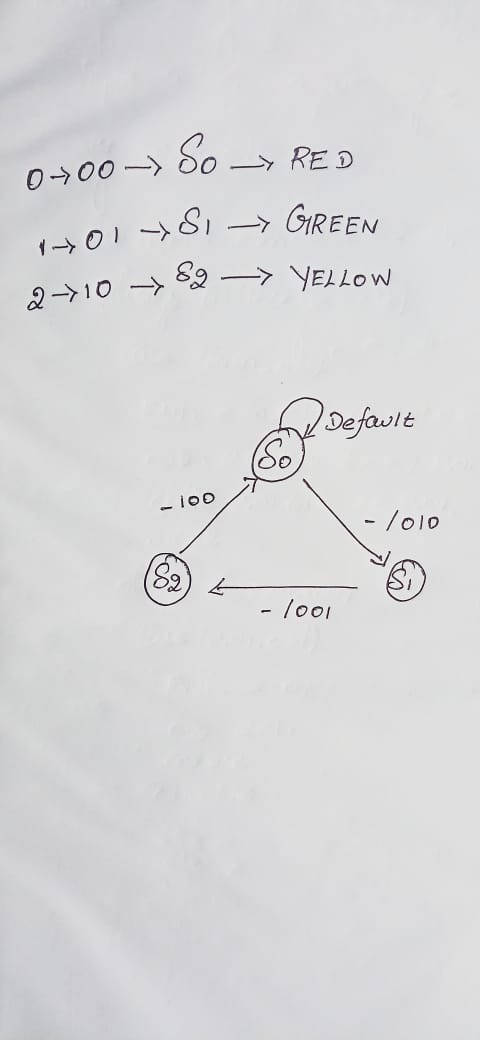 0→00→S0→RED
1→01→S1→GREEN
2→10→S2→YELLOW
Default
S0
-100
-/010
S2
S1
-/001